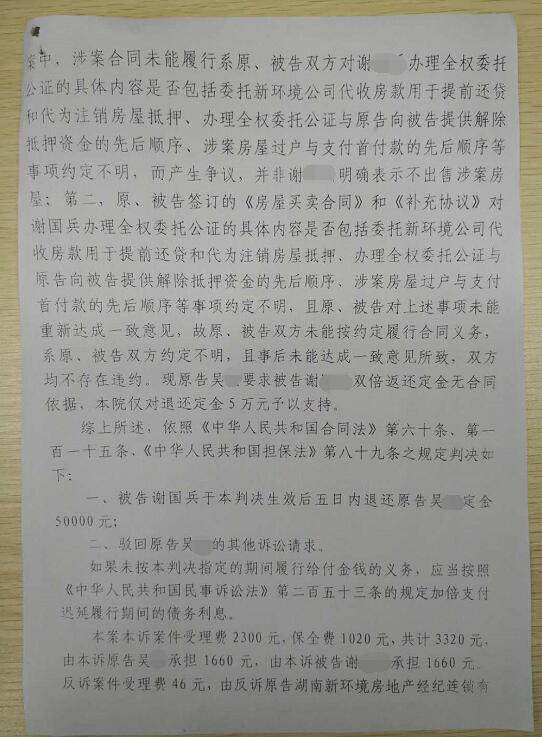 案中，涉案合同未能履行系原、被告双方对谢 办理全权委托
公证的具体内容是否包括委托新环境公司代收房款用于提前还贷
和代为注销房屋抵押、办理全权委托公证与原告向被告提供解除
抵押资金的先后顺序、涉案房屋过户与支付首付款的先后顺序等
事项约定不明，而产生争议，并非谢 明确表示不出售涉案房
屋；第二，原、被告签订的《房屋买卖合同》和《补充协议》对
谢国兵办理全权委托公证的具体内容是否包括委托新环境公司代
收房款用于提前还贷和代为注销房屋抵押、办理全权委托公证与
原告向被告提供解除抵押资金的先后顺序、涉案房屋过户与支付
首付款的先后顺序等事项约定不明，且原、被告对上述事项未能
重新达成一致意见，故原、被告双方未能按约定履行合同义务，
系原、被告双方约定不明，且事后未能达成一致意见所致，双方
均不存在违约。现原告吴 要求被告谢 双倍返还定金无合同
依据，本院仅对退还定金5万元予以支持。
综上所述，依照《中华人民共和国合同法》第六十条、第一
百一十五条、《中华人民共和国担保法》第八十九条之规定判决如
下：
一、被告谢国兵于本判决生效后五日内退还原告吴 定金
50000元；
二、驳回原告吴 的其他诉讼请求。
如果未按本判决指定的期间履行给付金钱的义务，应当按照
《中华人民共和国民事诉讼法》第二百五十三条的规定加倍支付
迟延履行期间的债务利息。
本案本诉案件受理费2300元，保全费1020元，共计3320元，
由本诉原告吴 承担1660元，由本诉被告谢 承担1660元。
反诉案件受理费46元，由反诉原告湖南新环境房地产经纪连锁有